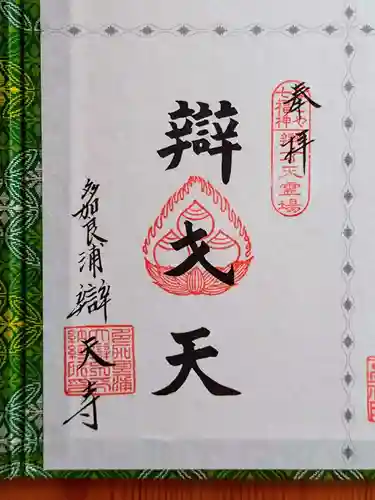 奉拝
七福神
霊場
辯才天
多加良浦辯天寺